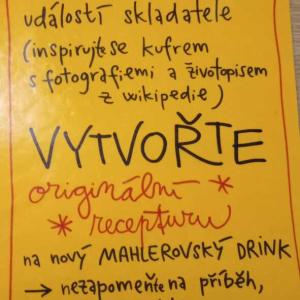 událostí skladatele
(inspirujte se kufrem
s fotografiemi a životopisem
z wikipedie)
VYTVOŘTE
originální *
* recepturu
na nový MAHLEROVSKÝ DRINK
→ nezapomeňte na příběh,